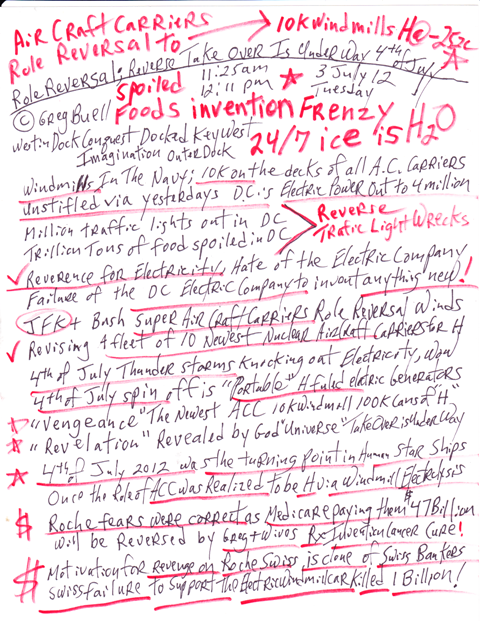 AIR CRAFT CARRIERS → 10K Windmills H@-252c
Role Reversal to
Role Reversal: Reverse Take Over Is Under Way 4th of July
11:25am 3 July 12
spoiled 12:11 pm Tuesday
© Greg Buell Foods invention Frenzy
Westin Dock Conquest Docked Key West 24/7 ice is H2O
Imagination Outer Dock
Windmills In The Navy; 10K on the decks of all A.C. Carriers
Unstifled via yesterdays D.C.'s Electric Power Out to 4 million
Million traffic lights out in DC Reverse
Trillion Tons of food spoiled in DC Traffic Light Wrecks
Reverence for Electricity, Hate of the Electric Company
Failure of the DC Electric Company to invent anything new!
JFK + Bush Super Air Craft Carriers Role Reversal Winds
Revising A fleet of 10 Newest Nuclear Aircraft Carriers for H
4th of July Thunder storms Knocking out Electricity, Wow
4th of July spin off is "Portable" H fuled eletric Generators
"Vengeance" The Newest ACC 10K Windmill 100K Cans of "H"
"Revelation" Revealed by God "Universe" Take Over is Under Way
4th of July 2012 was the turning point in Human Star Ships
Once the Role of ACC was Realized To be H via Windmill Electrolysis
$ Roche fears were correct as Medicare paying them $47 Billion
will be Reversed by Greg + Wives Rx Invention Cancer Cure!
$ Motivation for revenge on Roche Swiss is clone of Swiss Bankers
Swiss failure to Support the Electric windmill car killed 1 Billion!